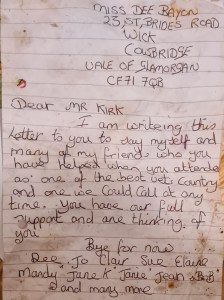 MISS DEE BAYON
23, ST, BRIDES ROAD
WICK
COWBRIDGE
VALE OF GLAMORGAN
CF71 7QB
Dear MR KIRK
I am writeing this
Letter to you to say myself and
many of my friends who you
have Helped when you attended
as one of the best vet Country
and one we Could Call at any
time. You have our full
support and are thinking of
you
Bye for now
Dee, Jo Clair Sue Elaine
mandy Jane K Janie Jean & Bob
and many more